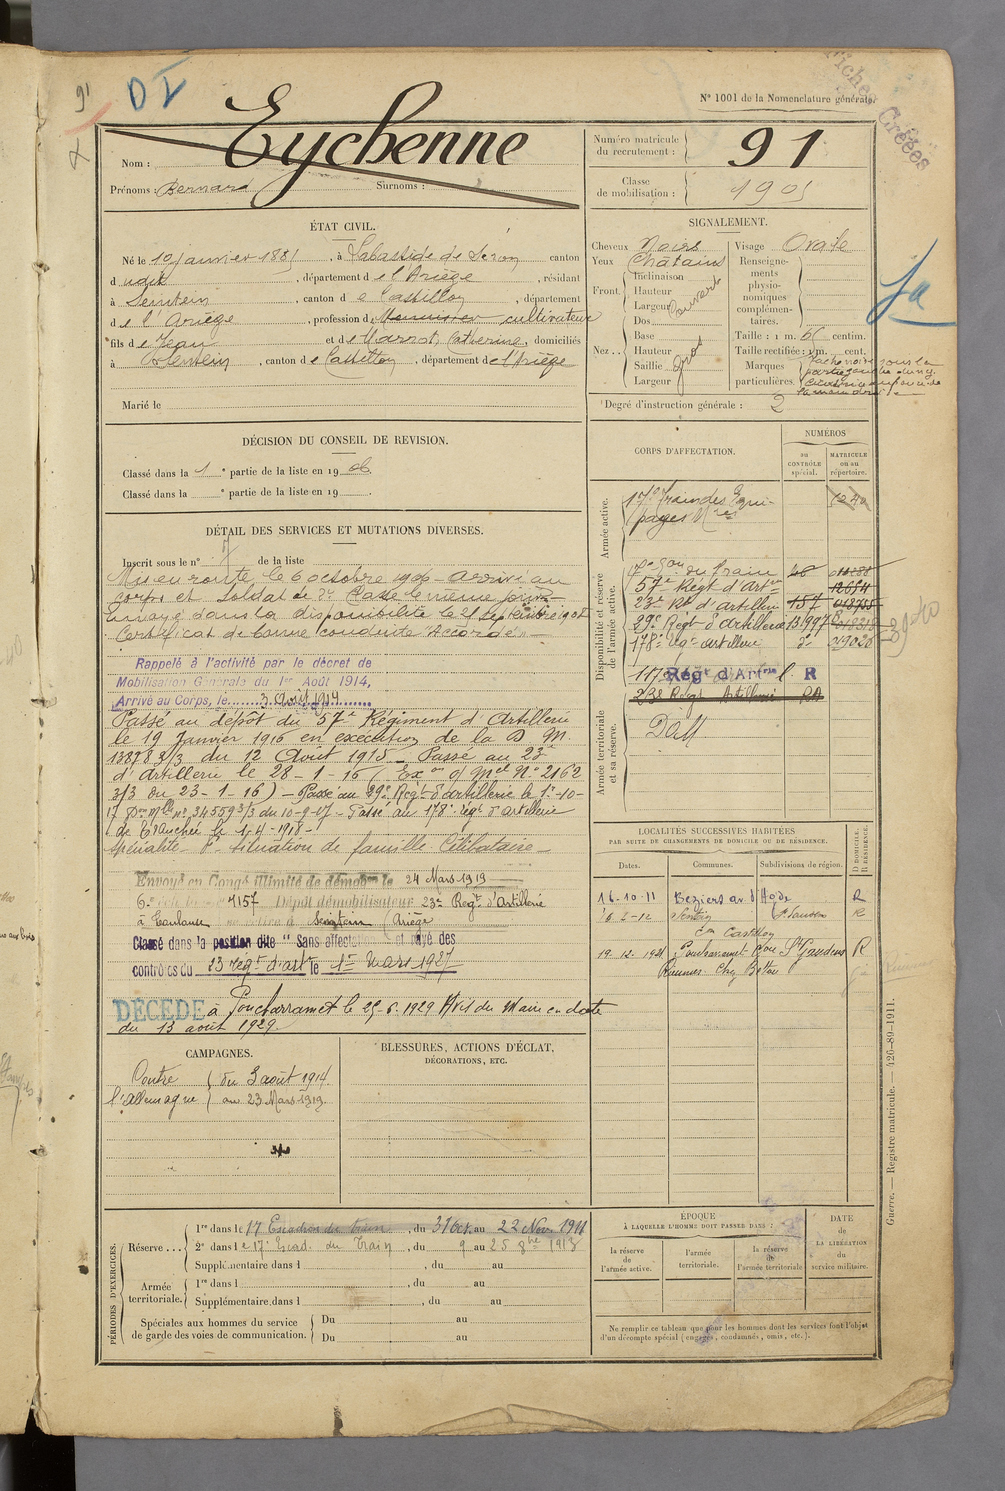 91
DI
N° 1001 de la Nomenclature générale
Fiches Créées
Nom : Eychenne
Prénoms : Bernard Surnoms :
Numéro matricule du recrutement : 91
Classe de mobilisation : 1905
ÉTAT CIVIL.
Né le 10 janvier 1885, à Labastide de Sérou canton
d udit, département de l'Ariège, résidant
à Sentein, canton de Castillon, département
de l'Ariège, profession de cultivateur
fils de Jean et de Catherine, domiciliés
à Sentein, canton de Castillon, département de l'Ariège
Marié le
SIGNALEMENT.
Cheveux Noirs Visage Ovale
Yeux Châtains
Front. Inclinaison Hauteur Largeur ouvert
Nez Dos Base Hauteur Saillie Largeur gros
Renseignements physionomiques complémentaires.
Taille : 1 m. centim.
Taille rectifiée : 1 m. cent.
Marques particulières.
Degré d'instruction générale : 2
DÉCISION DU CONSEIL DE REVISION.
Classé dans la 1e partie de la liste en 1906
Classé dans la e partie de la liste en 19
CORPS D'AFFECTATION.
NUMÉROS
au CONTRÔLE spécial.
MATRICULE ou au répertoire.
Armée active.
17e Train des Equipages Mres
1240
Disponibilité et réserve de l'armée active.
17e Eson du Train
57e Régt d'Artie 12654
23e Rt d'artillerie 157
29e Régt d'Artillerie 13997
178e Régt artillerie
117e Régt d'Artrie l. R
238 Régt Artillerie RA
Armée territoriale et sa réserve.
DÉTAIL DES SERVICES ET MUTATIONS DIVERSES.
Inscrit sous le n° 7 de la liste
Mis en route, le 6 octobre 1906 - arrivé au
corps et soldat de 2e Classe le même jour
Envoyé dans la disponibilité le 25 septembre 1908
Certificat de bonne conduite Accordé.
Rappelé à l'activité par le décret de
Mobilisation Générale du 1er Août 1914,
Arrivé au Corps, le 3 Août 1914
Passé au dépôt du 57e Régiment d'Artillerie
le 19 Janvier 1916 en exécution de la D. M.
13878 3/3 du 12 Août 1915. Passé au 23e
d'Artillerie le 28-1-16 (Exon d/Mel N° 2162
3/3 du 23-1-16) - Passé au 29e Régt d'artillerie le 1er-10-
17 Don Mlle n° 34559 3/3 du 10-9-17 - Passé au 178e régt d'artillerie
de Tranchée le 1-4-1918 -
Spécialité - situation de famille Célibataire -
Envoyé en Congé illimité de démobon le 24 Mars 1919
Dépôt démobilisateur 23e Regt d'Artillerie
à Toulouse se retire à Sentein (Ariège)
Classé dans la position dite " Sans affectation " et rayé des
contrôles du 23 regt d'artie le 1er Mars 1927
DÉCÉDÉ à Poucharramet le 25-6-1929 Avis du Maire en date
du 13 août 1929.
LOCALITÉS SUCCESSIVES HABITÉES
PAR SUITE DE CHANGEMENTS DE DOMICILE OU DE RÉSIDENCE.
Dates. Communes. Subdivisions de région. D. DOMICILE. R. RÉSIDENCE.
16.10.11 Beziers R
2-12 Sentein St Gaudens R
Con Castillon
19.12.1921 Poucharramet St Gaudens R
CAMPAGNES.
Contre l'Allemagne du 3 août 1914
au 23 Mars 1919.
BLESSURES, ACTIONS D'ÉCLAT,
DÉCORATIONS, ETC.
PÉRIODES D'EXERCICES.
Réserve ...
1re dans le 17 Escadron du train, du 31 Oct. au 22 Nov. 1911
2e dans le 17e Escad. du Train, du 9 au 25 8bre 1913
Supplémentaire dans l , du au
Armée territoriale.
1re dans l , du au
Supplémentaire dans l , du au
Spéciales aux hommes du service
de garde des voies de communication.
Du au
Du au
ÉPOQUE
À LAQUELLE L'HOMME DOIT PASSER DANS :
la réserve de l'armée active.
l'armée territoriale.
la réserve de l'armée territoriale
DATE de LA LIBÉRATION du service militaire.
Ne remplir ce tableau que pour les hommes dont les services font l'objet
d'un décompte spécial (engagés, condamnés, omis, etc.).
Guerre. — Registre matricule. — 426-89-1911.